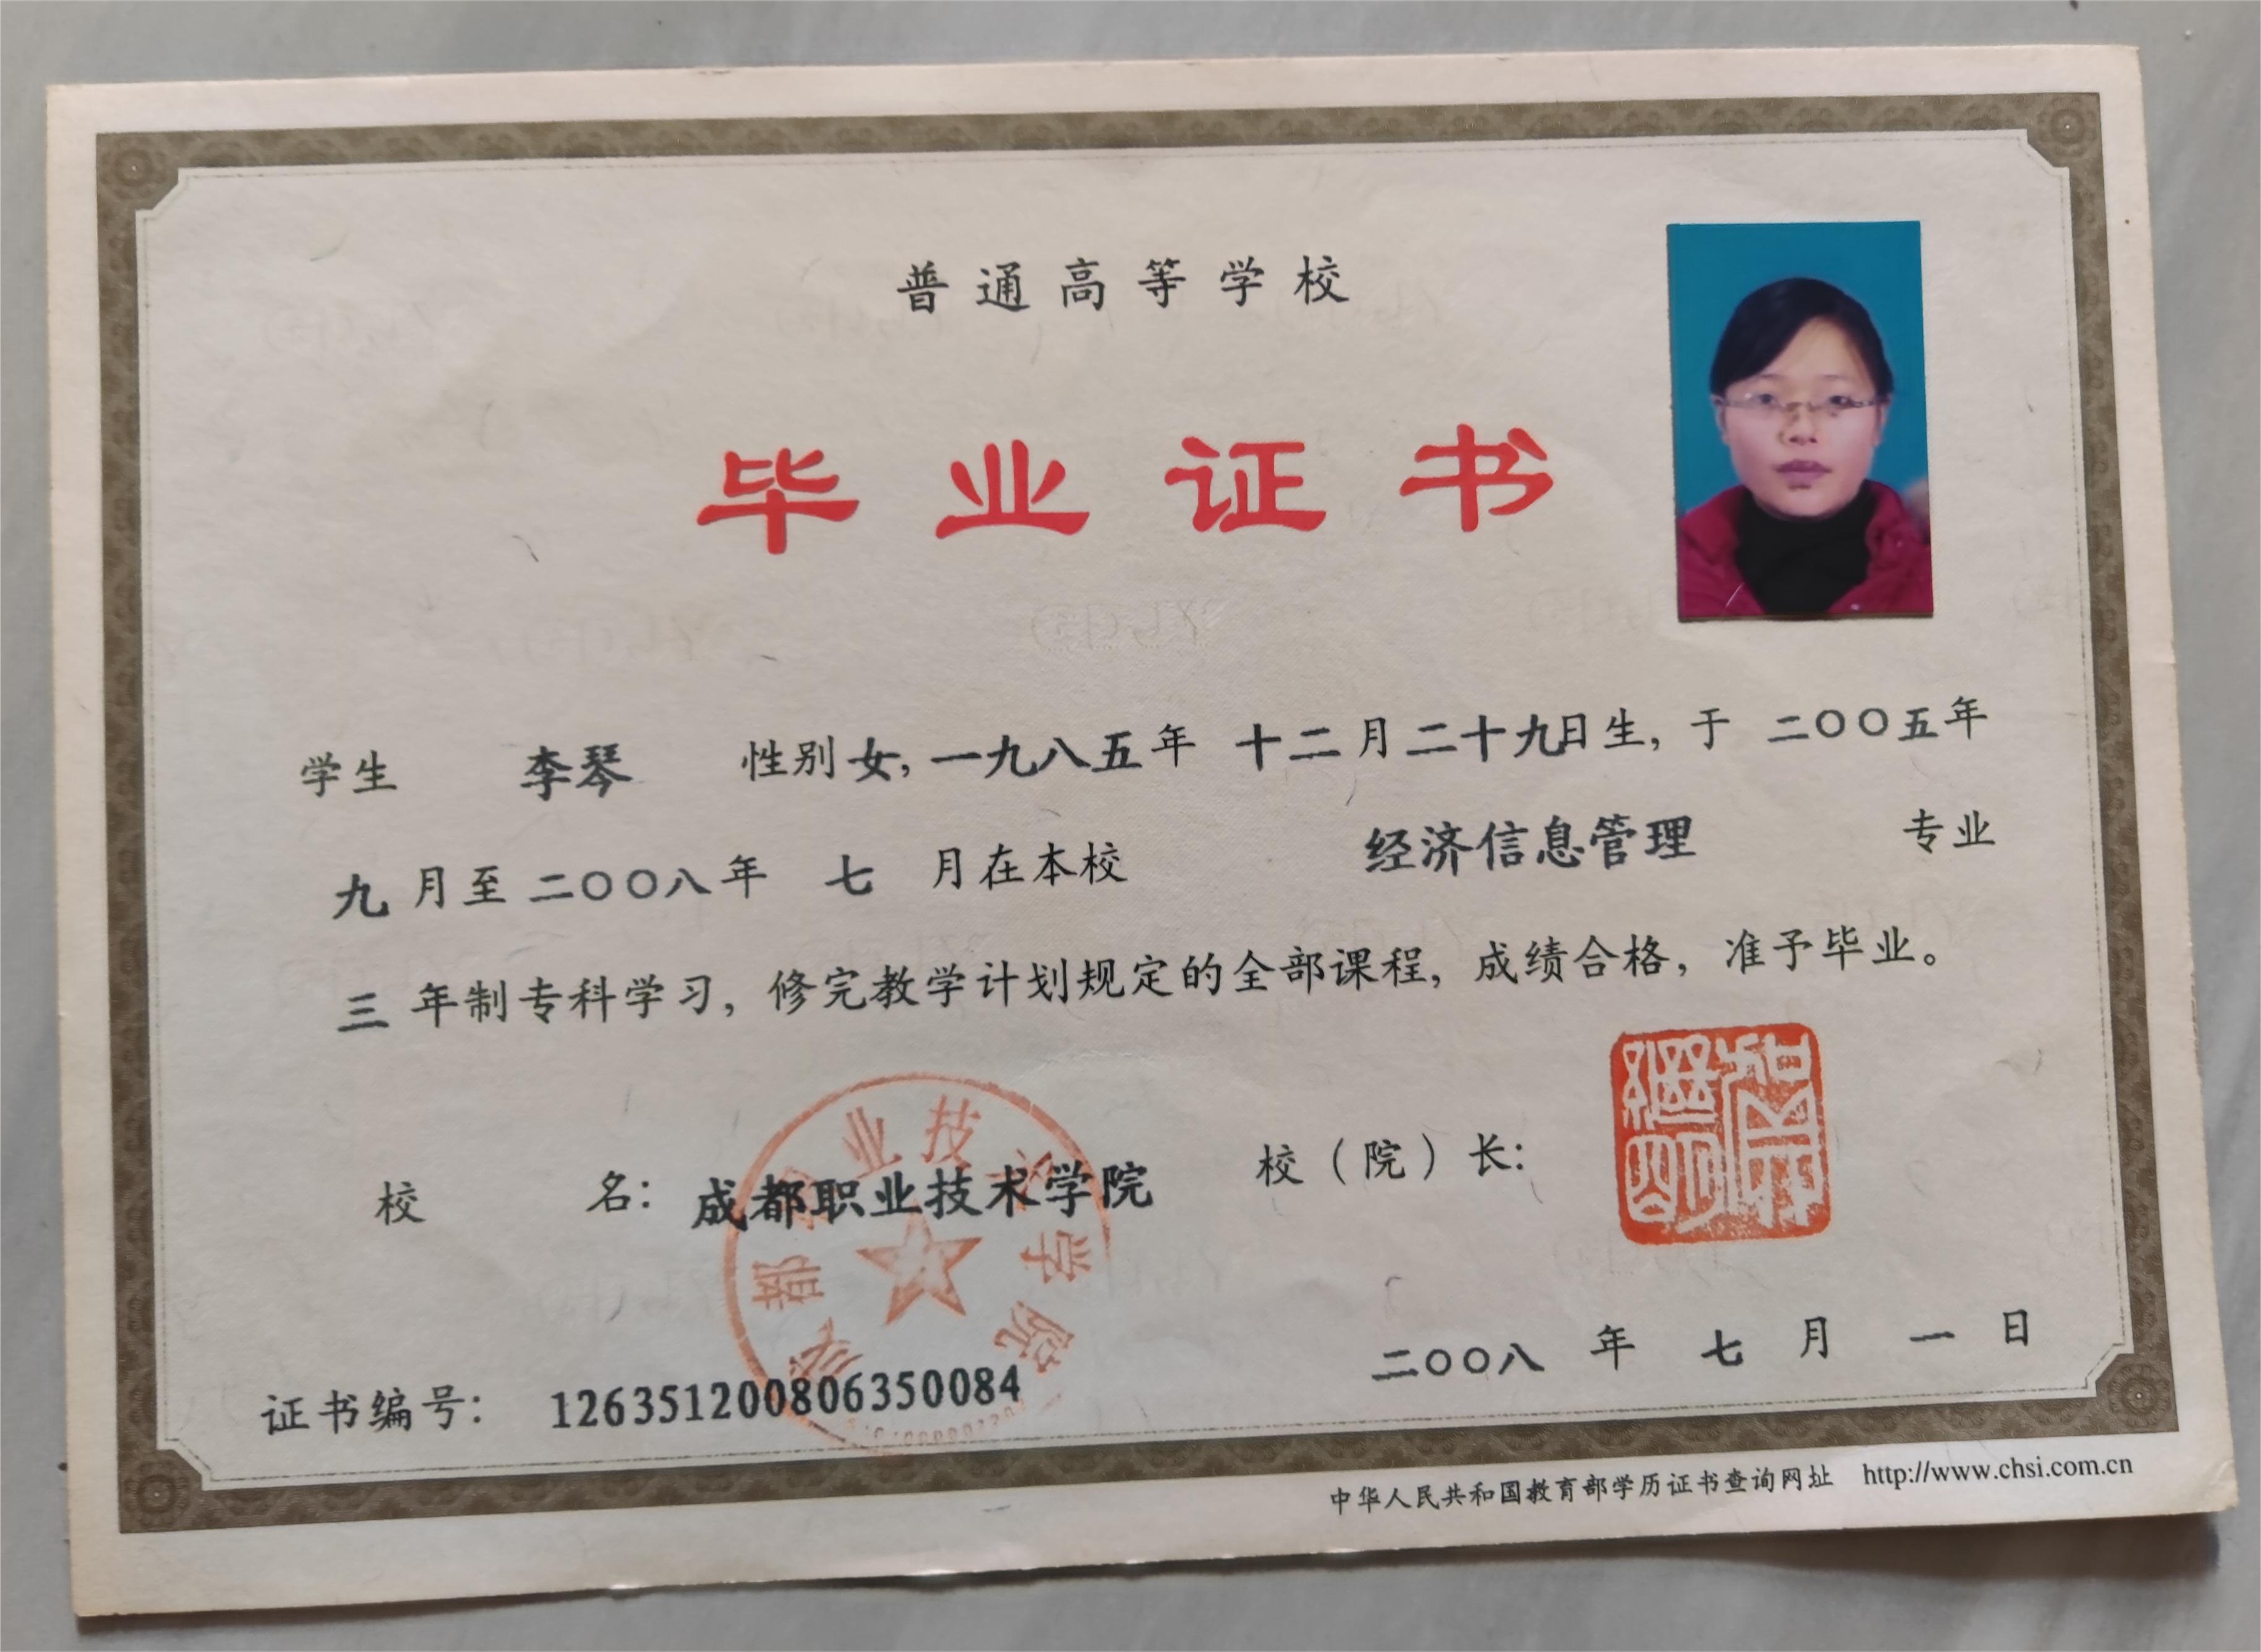 普通高等学校
毕业证书
学生 李琴 性别女,一九八五年 十二月二十九日生,于 二〇〇五年
九 月至 二〇〇八年 七 月在本校 经济信息管理 专业
三 年制专科学习,修完教学计划规定的全部课程,成绩合格,准予毕业。
校 名:成都职业技术学院 校(院)长:
成都职业技术学院
二〇〇八 年 七 月 一 日
证书编号: 126351200806350084
中华人民共和国教育部学历证书查询网址 http://www.chsi.com.cn